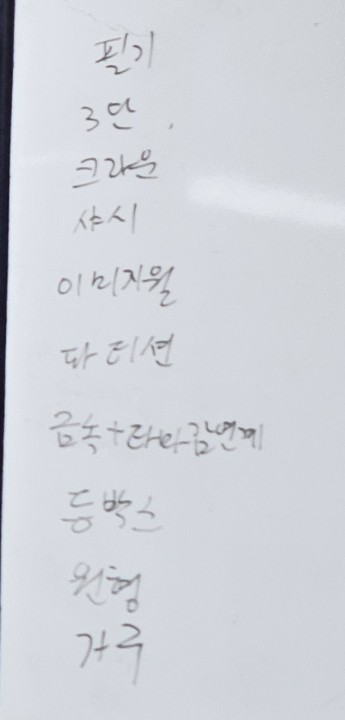 필기
3단
크라운
샤시
이미지월
파티션
금속+타마감연계
등박스
원형
가구